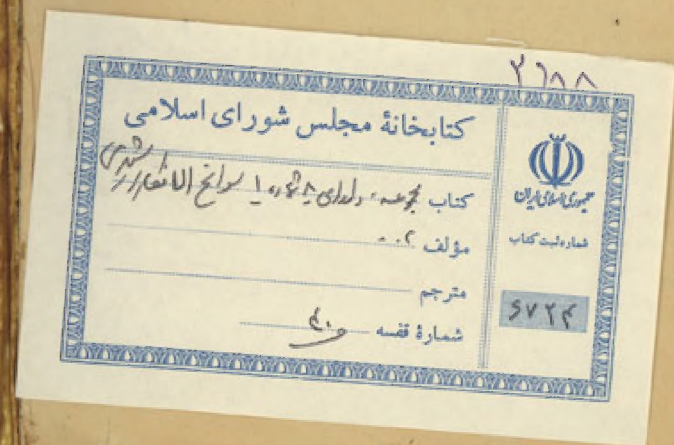 ۲۶۸۸
کتابخانهٔ مجلس شورای اسلامی
کتاب مجموعه، دارای ۸ شماره ۱ سوانح الافکار رشیدی
مؤلف
مترجم
شمارهٔ قفسه
جمهوری اسلامی ایران
شماره ثبت کتاب
۶۷۲۴